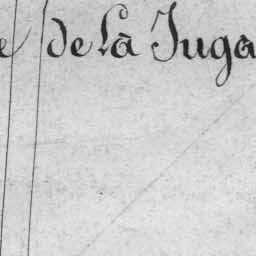 e de La Juga